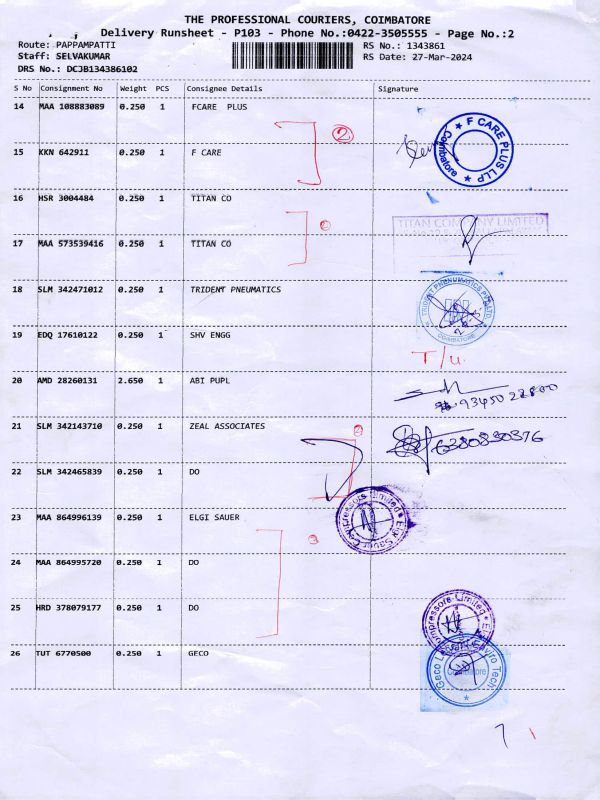 THE PROFESSIONAL COURIERS, COIMBATORE
Delivery Runsheet - P103 - Phone No.:0422-3505555 - Page No.:2
Route: PAPPAMPATTI RS No.: 1343861
Staff: SELVAKUMAR RS Date: 27-Mar-2024
DRS No.: DCJB134386102
S No Consignment No Weight PCS Consignee Details Signature
14 MAA 108883089 0.250 1 FCARE PLUS
②
F CARE PLUS LLP
★ Coimbatore ★
15 KKN 642911 0.250 1 F CARE
16 HSR 3004484 0.250 1 TITAN CO
TITAN COMPANY LIMITED
17 MAA 573539416 0.250 1 TITAN CO
18 SLM 342471012 0.250 1 TRIDENT PNEUMATICS
COIMBATORE
19 EDQ 17610122 0.250 1 SHV ENGG
T/U.
20 AMD 28260131 2.650 1 ABI PUPL
21 SLM 342143710 0.250 1 ZEAL ASSOCIATES
6380830376
22 SLM 342465839 0.250 1 DO
23 MAA 864996139 0.250 1 ELGI SAUER
③
24 MAA 864995720 0.250 1 DO
25 HRD 378079177 0.250 1 DO
26 TUT 6770500 0.250 1 GECO
Coimbatore